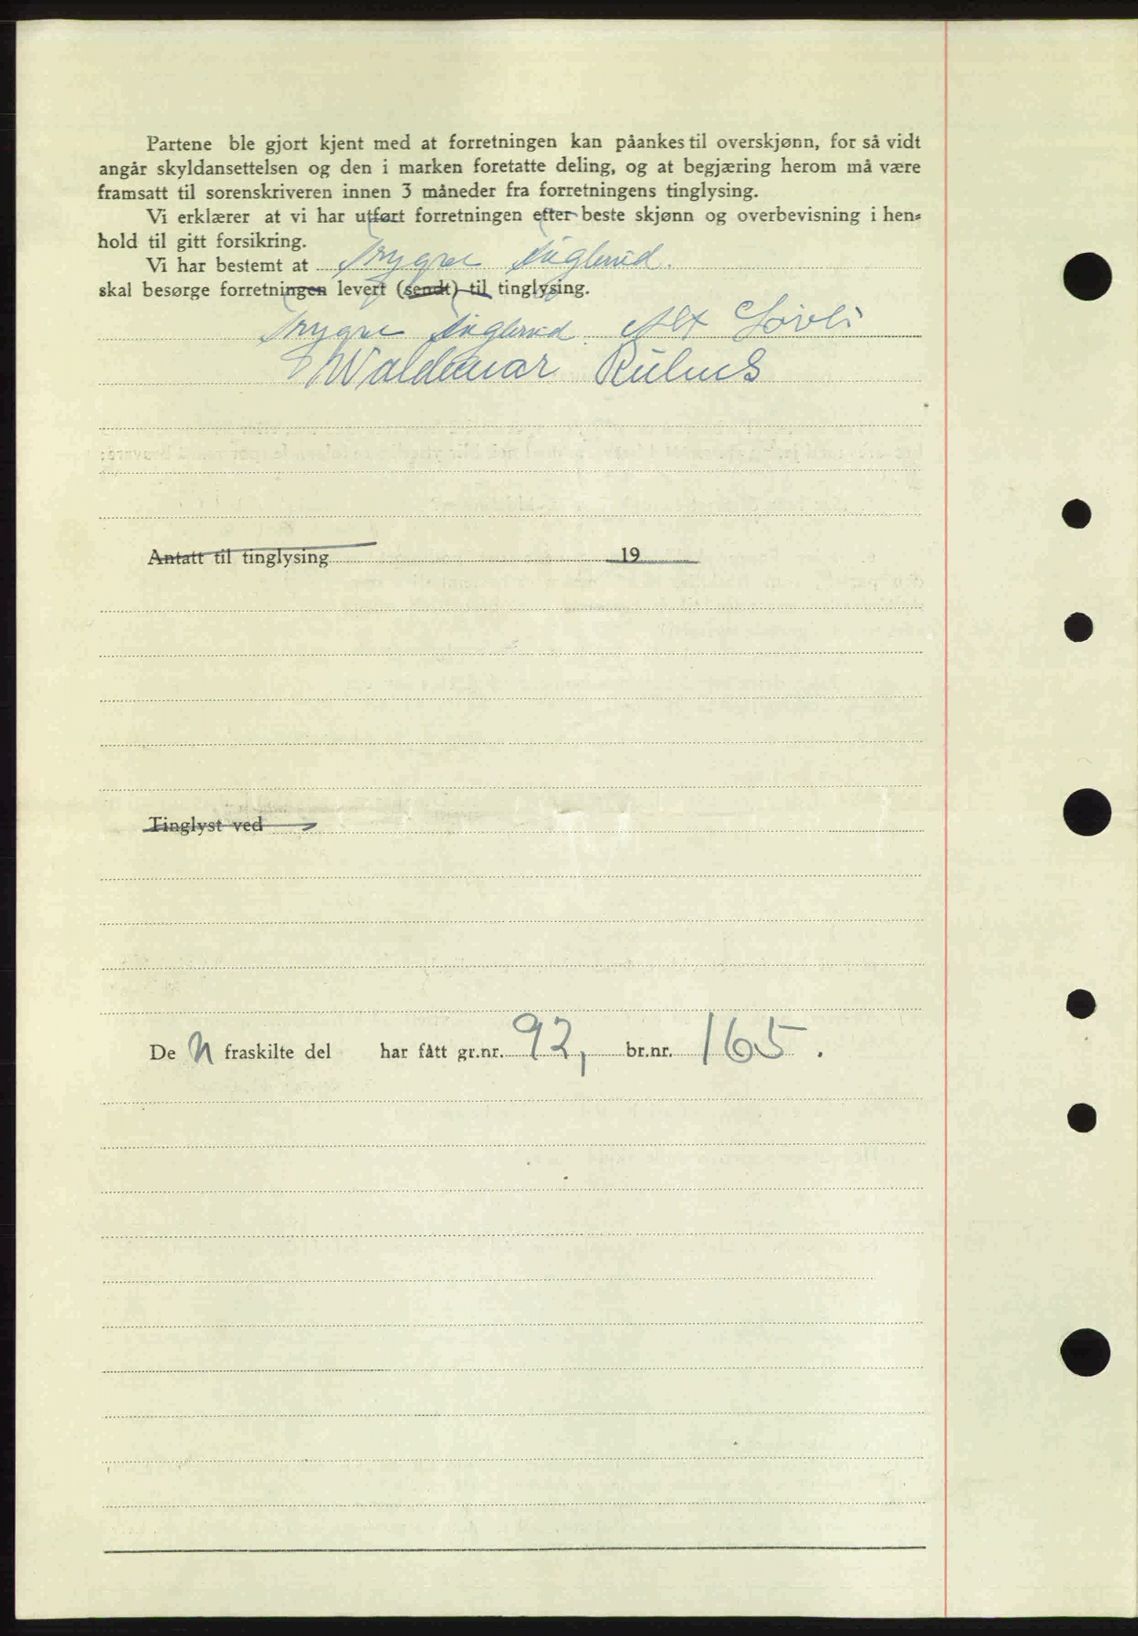 Partene ble gjort kjent med at forretningen kan påankes til overskjønn, for så vidt
angår skyldansettelsen og den i marken foretatte deling, og at begjæring herom må være
framsatt til sorenskriveren innen 3 måneder fra forretningens tinglysing.
Vi erklærer at vi har utført forretningen efter beste skjønn og overbevisning i hen-
hold til gitt forsikring.
Vi har bestemt at Trygve
skal besørge forretningen levert (sendt) til tinglysing.
Trygve Alf Løvli
Waldemar
Antatt til tinglysing 19
Tinglyst ved
De n fraskilte del har fått gr.nr. 92, br.nr. 165.